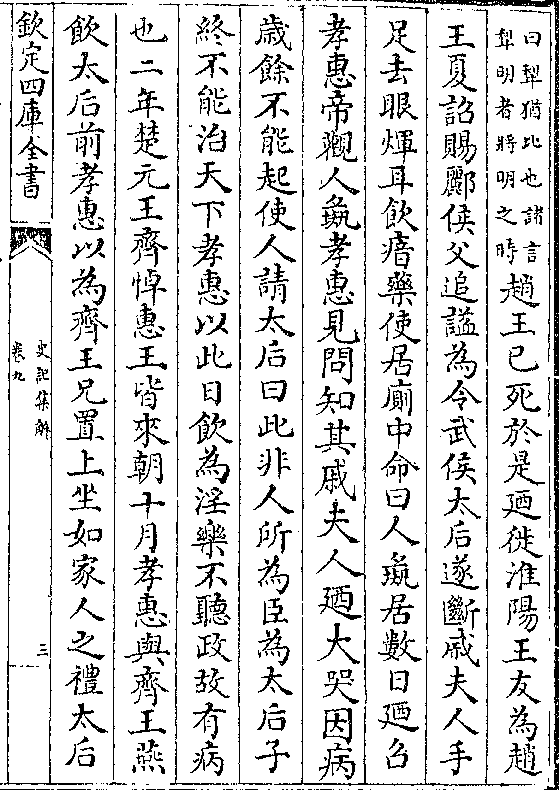 曰犂猶比也諸言
犂明者將明之時
趙王已死於是廼徙淮陽王友為趙
王夏詔賜酈侯父追諡為令武侯太后遂斷戚夫人手
足去眼煇耳飲瘖藥使居廁中命曰人彘居數日廼召
孝惠帝觀人彘孝惠見問知其戚夫人廼大哭因病
歳餘不能起使人請太后曰此非人所為臣為太后子
終不能治天下孝惠以此日飲為淫樂不聽政故有病
也二年楚元王齊悼惠王皆來朝十月孝惠與齊王燕
飲太后前孝惠以為齊王兄置上坐如家人之禮太后
欽定四庫全書
史記集解
卷九
三